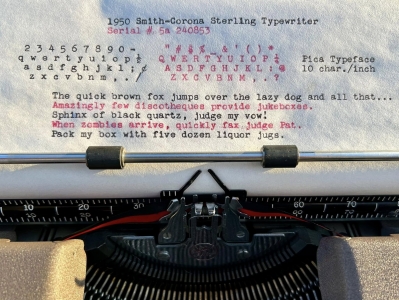 1950 Smith-Corona Sterling Typewriter
Serial # 5A 240853
2 3 4 5 6 7 8 9 0 - " # $ % _ & ' ( ) *
q w e r t y u i o p ½ Q W E R T Y U I O P ¼ Pica Typeface
a s d f g h j k l ; ¢ A S D F G H J K L : @ 10 char./inch
z x c v b n m , . / Z X C V B N M , . ?
The quick brown fox jumps over the lazy dog and all that...
Amazingly few discotheques provide jukeboxes.
Sphinx of black quartz, judge my vow!
When zombies arrive, quickly fax judge Pat.
Pack my box with five dozen liquor jugs.
10 20 30 60 70